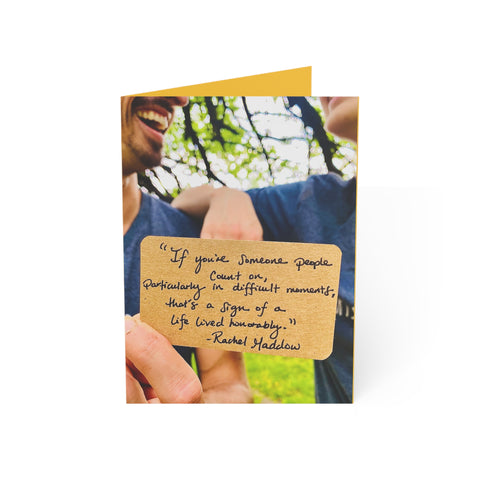 "If you're someone people
count on,
particularly in difficult moments,
that's a sign of a
life lived honorably."
-Rachel Maddow